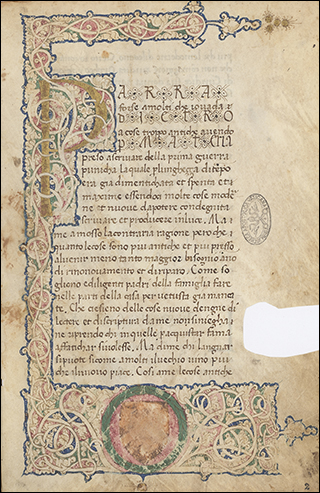 PARRA
forse amolti che io vada
DIETRO
a cose troppo antiche avendo
preso ascrivere della prima guerra
punicha laquale plunghezza di tēpo
era gia dimenticata et spenta et
maxime essendo molte cose mode
ne et nuove dapotere condegnita
scrivere et producere inluce. Ma
me a mosso lacontraria ragione pero che
quanto lecose sono piu antiche et piu presso
alvenir meno tanto maggior bisogno anno
di rinovamento et diriparo. Come so
gliono ediligenti padri della famiglia fare
nelle parti della casa per vetusta gia manca
te. Che sesieno delle cose nuove degne di
lectere et discriptura dame nonsiniegha
ne riprendo chi inquelle paquistar fama
affatichar sivolesse. Ma dime chi
sipuote sicome amolti ilvechio vino piu
che ilnuovo piace. Cosi ame lecose antiche
2